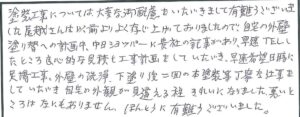 塗装工事については大変な御配慮をいただきまして有難うございま
した。尾越さんは以前より上しなど上がっておりましたので、自宅の外壁
塗り替への計画中、中日ショッパーに貴社の記事があり、早速TELし
たところ良心的な見積と工事計画をしていただき、早速希望日時に
見積工事、外壁の洗浄、下塗り後二回の本塗装等丁寧な仕事を
していただき自宅の外観が見違える程きれいになりました。悪いと
ころはなにもありません。ほんとうに有難うございました。